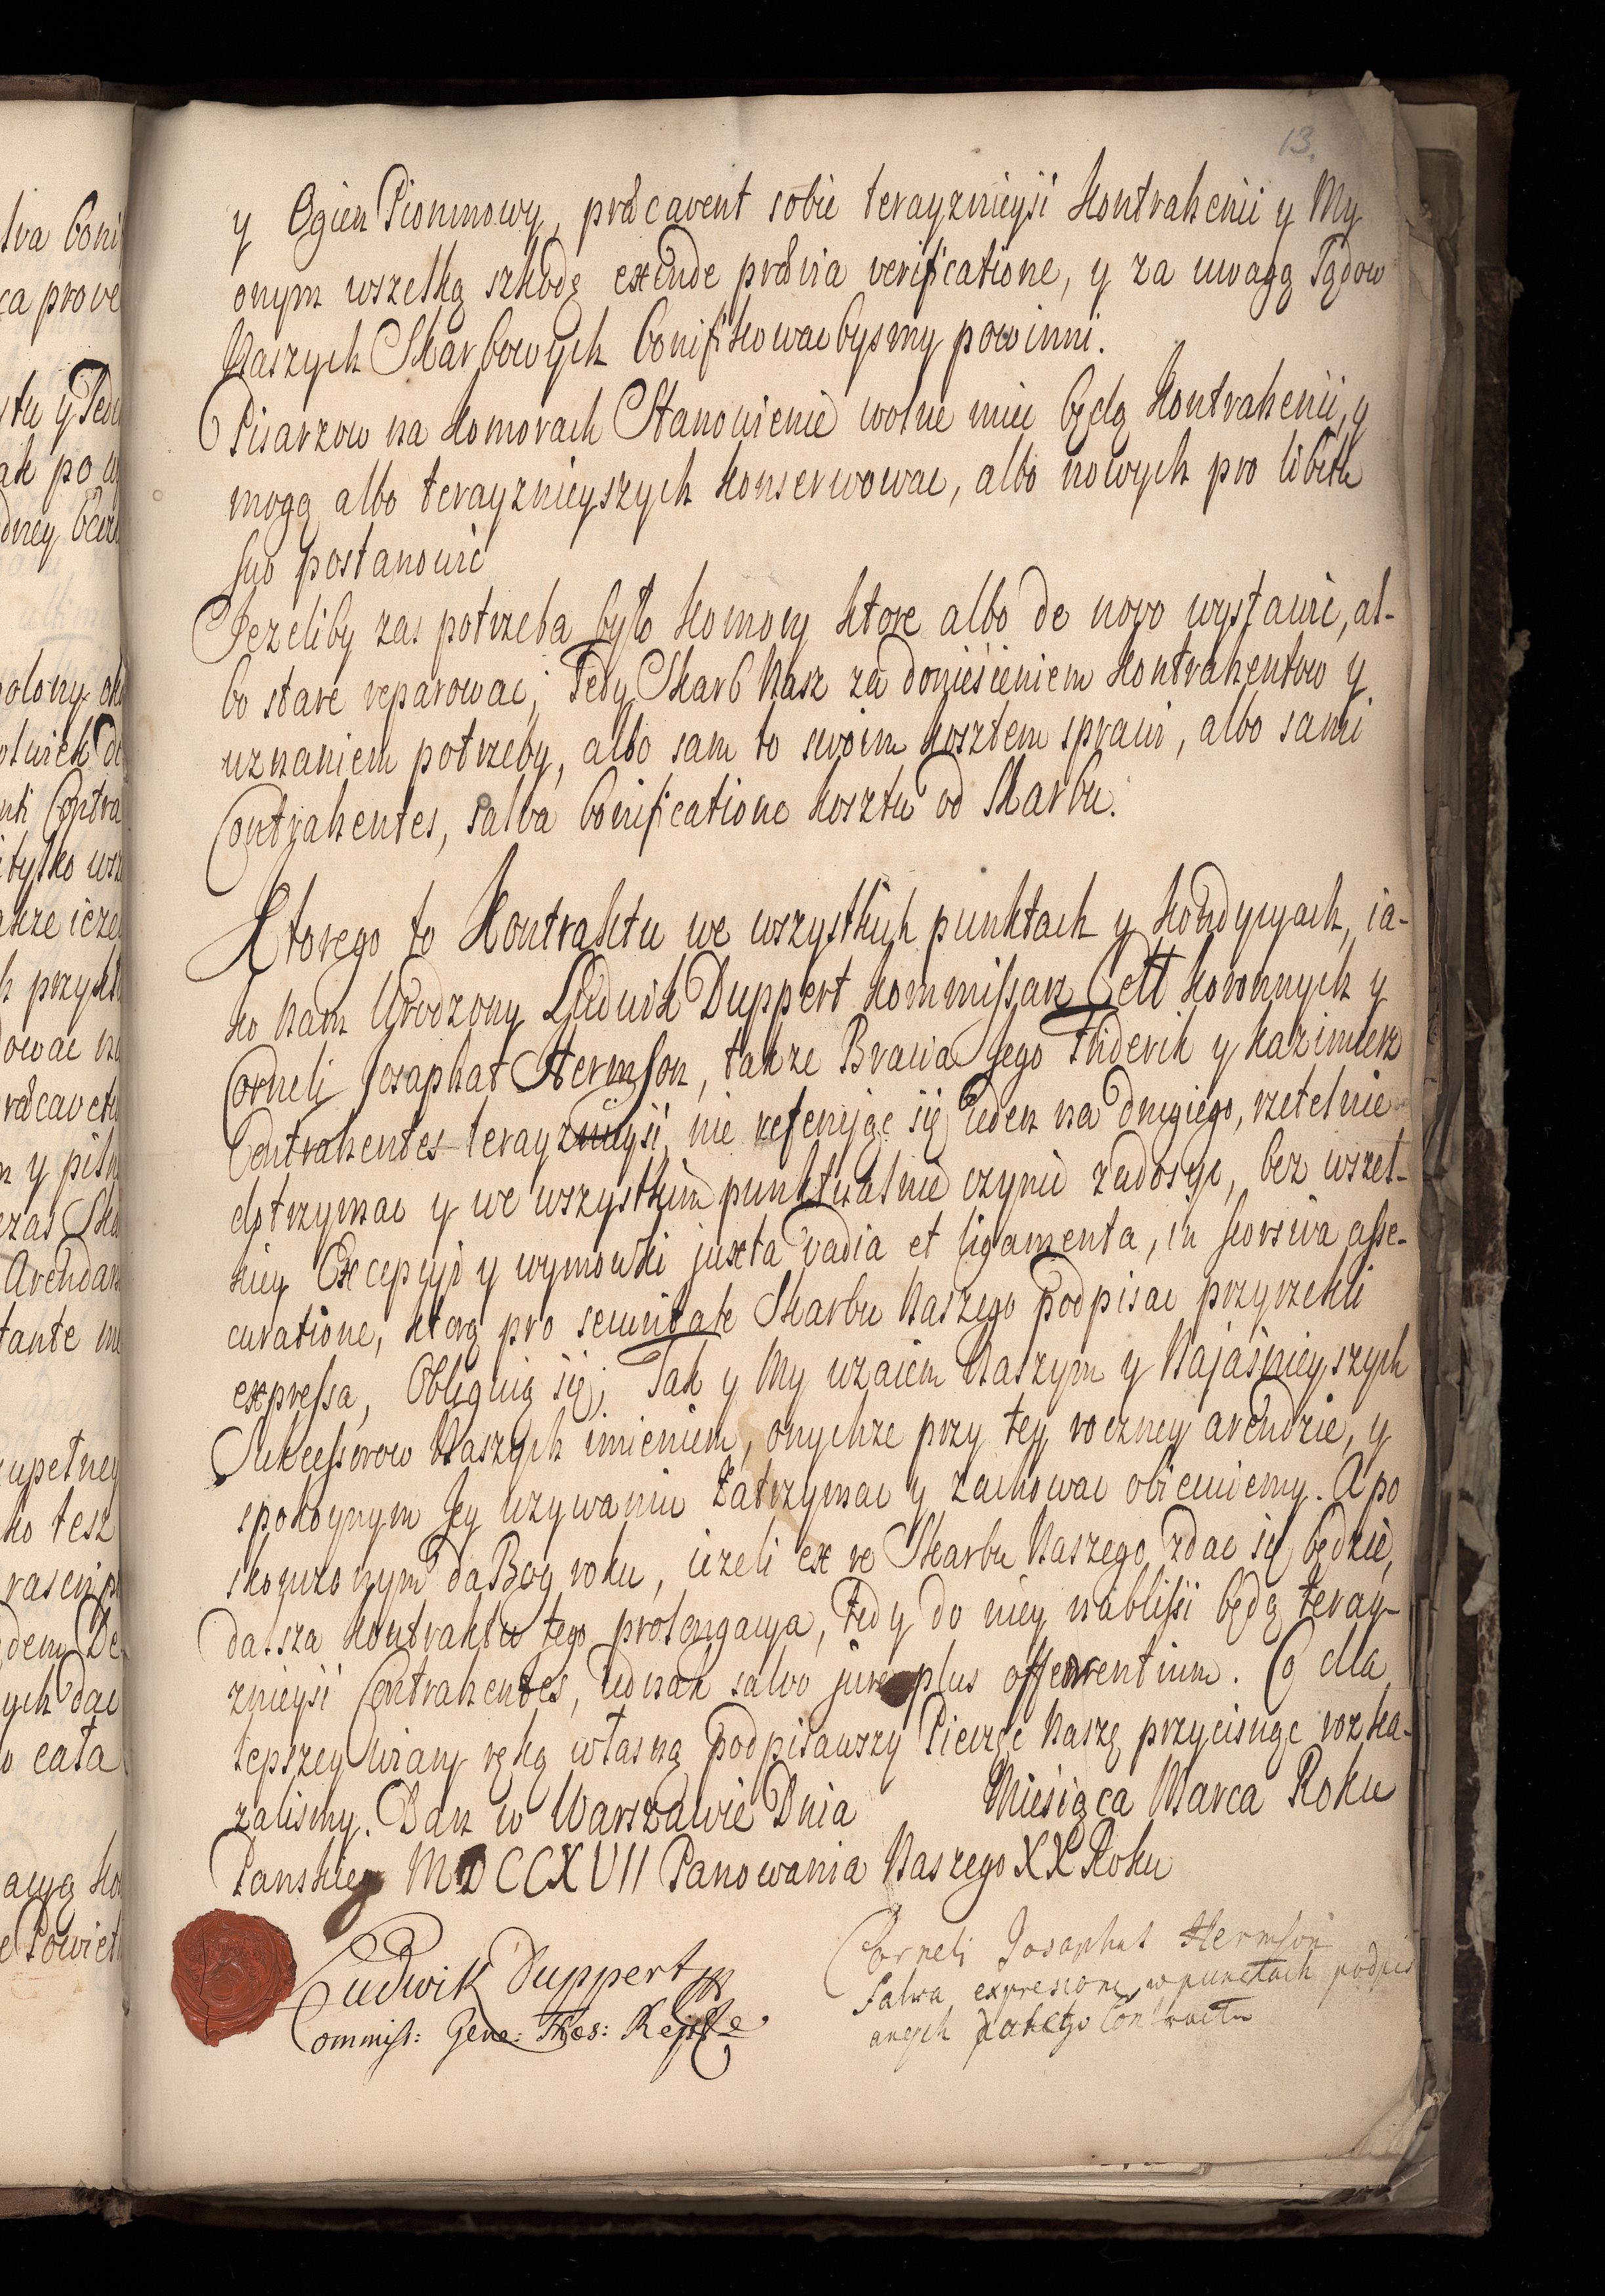 13.
y Ogien Piorunowy, præcavent sobie terayznieysi Kontrahenci y My
onym wszelką szkodę exinde prævia verificatione, y za uwagą Sądow
Naszych Skarbowych bonifikowac bysmy powinni.
Pisarzow na Komorach Stanowienie wolne miec będą Kontrahenci, y
mogą albo terayznieyszych konserwowac, albo nowych pro libitu
suo postanowic
Jezeliby zas potrzeba było Komory ktore albo de novo wystawic, al-
bo stare reparowac, Tedy Skarb Nasz za doniesieniem Kontrahentow y
uznaniem potrzeby, albo sam to swoim kosztem sprawi, albo sami
Contrahentes, salva bonificatione kosztu od Skarbu.
Ktorego to Kontraktu we wszystkich punktach y kondycyach, ia-
ko Nam Urodzony Ludwik Duppert Kommissarz Cell Koronnych y
Corneli Josaphat Hermson, takze Bracia Jego Friderik y Kazimierz
Contrahentes terayznieysi, nie referując się ieden na drugiego, rzetelnie
dotrzymac y we wszystkim punktualnie czynic zadosyc, bez wszel-
kiey Excepcyi y wymowki juxta vadia et ligamenta, in scorsiva asse-
curatione, ktorą pro securitate Skarbu Naszego podpisac przyrzekli
expressa, Obliguią się, Tak y My wzaiem Naszym y Najaśnieyszych
Sukcessorow Naszych imieniem, onychze przy tey roczney arendzie, y
spokoynym Jey uzywaniu Zatrzymac y zachowac obiecuiemy. A po
skonczonym da Bog roku, iezeli ex re Skarbu Naszego zdac się będzie,
dalsza kontraktu tego prolongacya, tedy do niey nabliſsi będą teray-
znieysi Contrahentes, iednak salvo jure plus offerentium. Co dla
lepszey wiary ręką własną podpisawszy Pieczęc Naszę przycisnąc rozka-
zalismy. Dan w Warszawie Dnia Miesiąca Marca Roku
Panskieg MDCCXVII Panowania Naszego XX Roku
Ludwik Duppert
Commiss: Gene: Thes:
Corneli Josaphat Hermson
Salva expresione w punctach podpis
anych Contractu